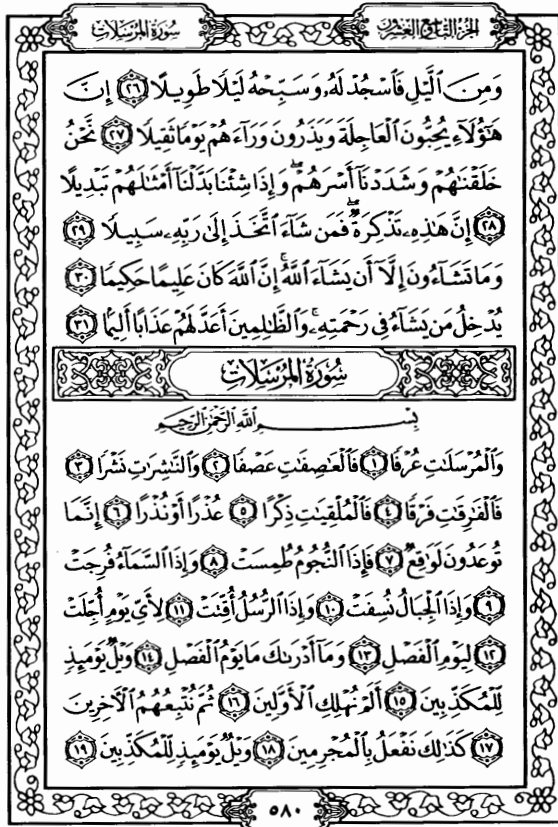 سُورَةُ المُرْسَلَات الجُزْءُ التَّاسِعُ وَالعِشْرُونَ
وَمِنَ ٱلَّيْلِ فَٱسْجُدْ لَهُۥ وَسَبِّحْهُ لَيْلًا طَوِيلًا ٢٦ إِنَّ
هَٰٓؤُلَآءِ يُحِبُّونَ ٱلْعَاجِلَةَ وَيَذَرُونَ وَرَآءَهُمْ يَوْمًا ثَقِيلًا ٢٧ نَّحْنُ
خَلَقْنَٰهُمْ وَشَدَدْنَآ أَسْرَهُمْ ۖ وَإِذَا شِئْنَا بَدَّلْنَآ أَمْثَٰلَهُمْ تَبْدِيلًا
٢٨ إِنَّ هَٰذِهِۦ تَذْكِرَةٌ ۖ فَمَن شَآءَ ٱتَّخَذَ إِلَىٰ رَبِّهِۦ سَبِيلًا ٢٩
وَمَا تَشَآءُونَ إِلَّآ أَن يَشَآءَ ٱللَّهُ ۚ إِنَّ ٱللَّهَ كَانَ عَلِيمًا حَكِيمًا ٣٠
يُدْخِلُ مَن يَشَآءُ فِى رَحْمَتِهِۦ ۚ وَٱلظَّٰلِمِينَ أَعَدَّ لَهُمْ عَذَابًا أَلِيمًۢا ٣١
سُورَةُ المُرْسَلَات
بِسْمِ ٱللَّهِ ٱلرَّحْمَٰنِ ٱلرَّحِيمِ
وَٱلْمُرْسَلَٰتِ عُرْفًا ١ فَٱلْعَٰصِفَٰتِ عَصْفًا ٢ وَٱلنَّٰشِرَٰتِ نَشْرًا ٣
فَٱلْفَٰرِقَٰتِ فَرْقًا ٤ فَٱلْمُلْقِيَٰتِ ذِكْرًا ٥ عُذْرًا أَوْ نُذْرًا ٦ إِنَّمَا
تُوعَدُونَ لَوَٰقِعٌ ٧ فَإِذَا ٱلنُّجُومُ طُمِسَتْ ٨ وَإِذَا ٱلسَّمَآءُ فُرِجَتْ
٩ وَإِذَا ٱلْجِبَالُ نُسِفَتْ ١٠ وَإِذَا ٱلرُّسُلُ أُقِّتَتْ ١١ لِأَىِّ يَوْمٍ أُجِّلَتْ
١٢ لِيَوْمِ ٱلْفَصْلِ ١٣ وَمَآ أَدْرَىٰكَ مَا يَوْمُ ٱلْفَصْلِ ١٤ وَيْلٌ يَوْمَئِذٍ
لِّلْمُكَذِّبِينَ ١٥ أَلَمْ نُهْلِكِ ٱلْأَوَّلِينَ ١٦ ثُمَّ نُتْبِعُهُمُ ٱلْـَٔاخِرِينَ
١٧ كَذَٰلِكَ نَفْعَلُ بِٱلْمُجْرِمِينَ ١٨ وَيْلٌ يَوْمَئِذٍ لِّلْمُكَذِّبِينَ ١٩
٥٨٠